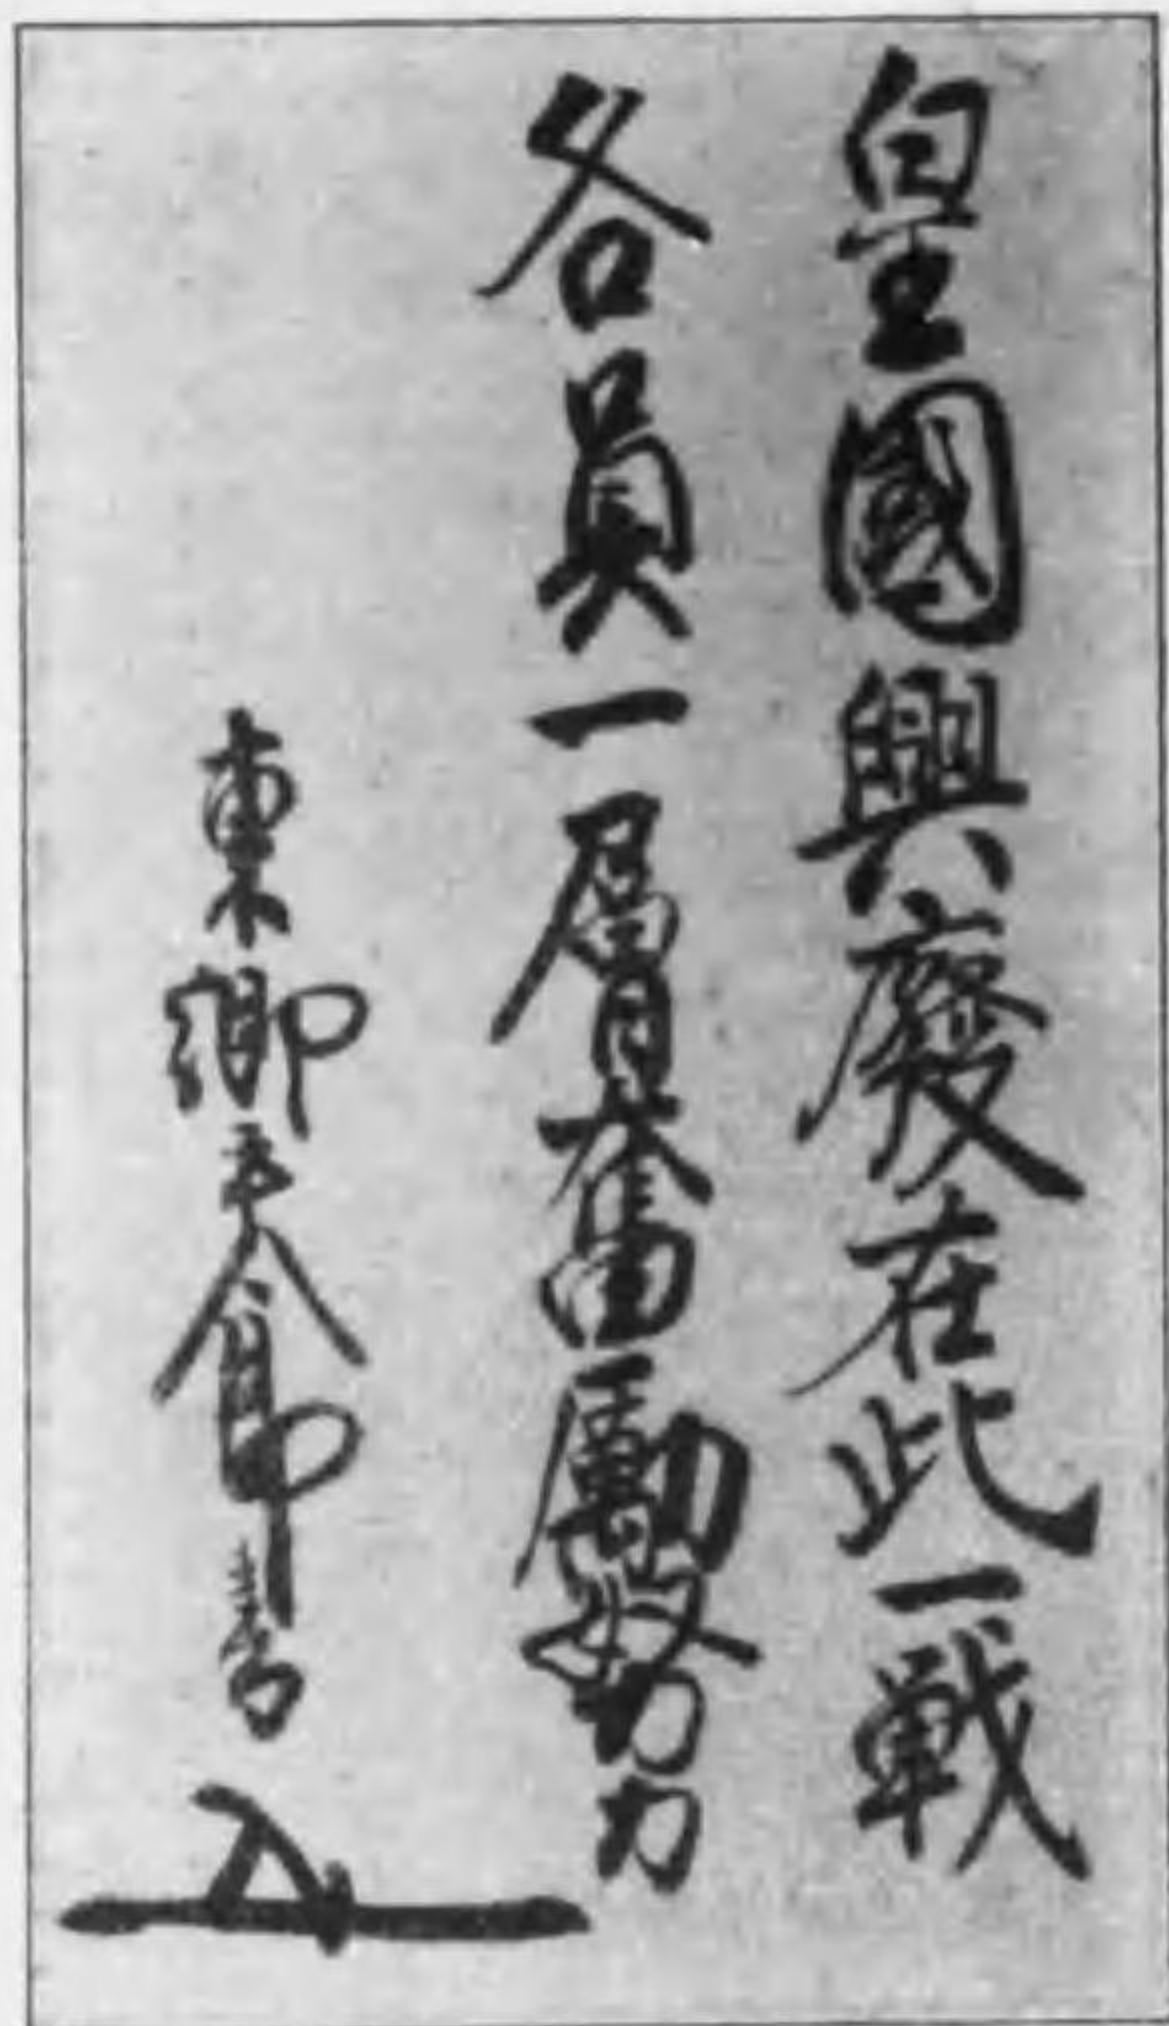 皇國興廢在此一戰
各員一層奮勵努力
東郷平八郎書